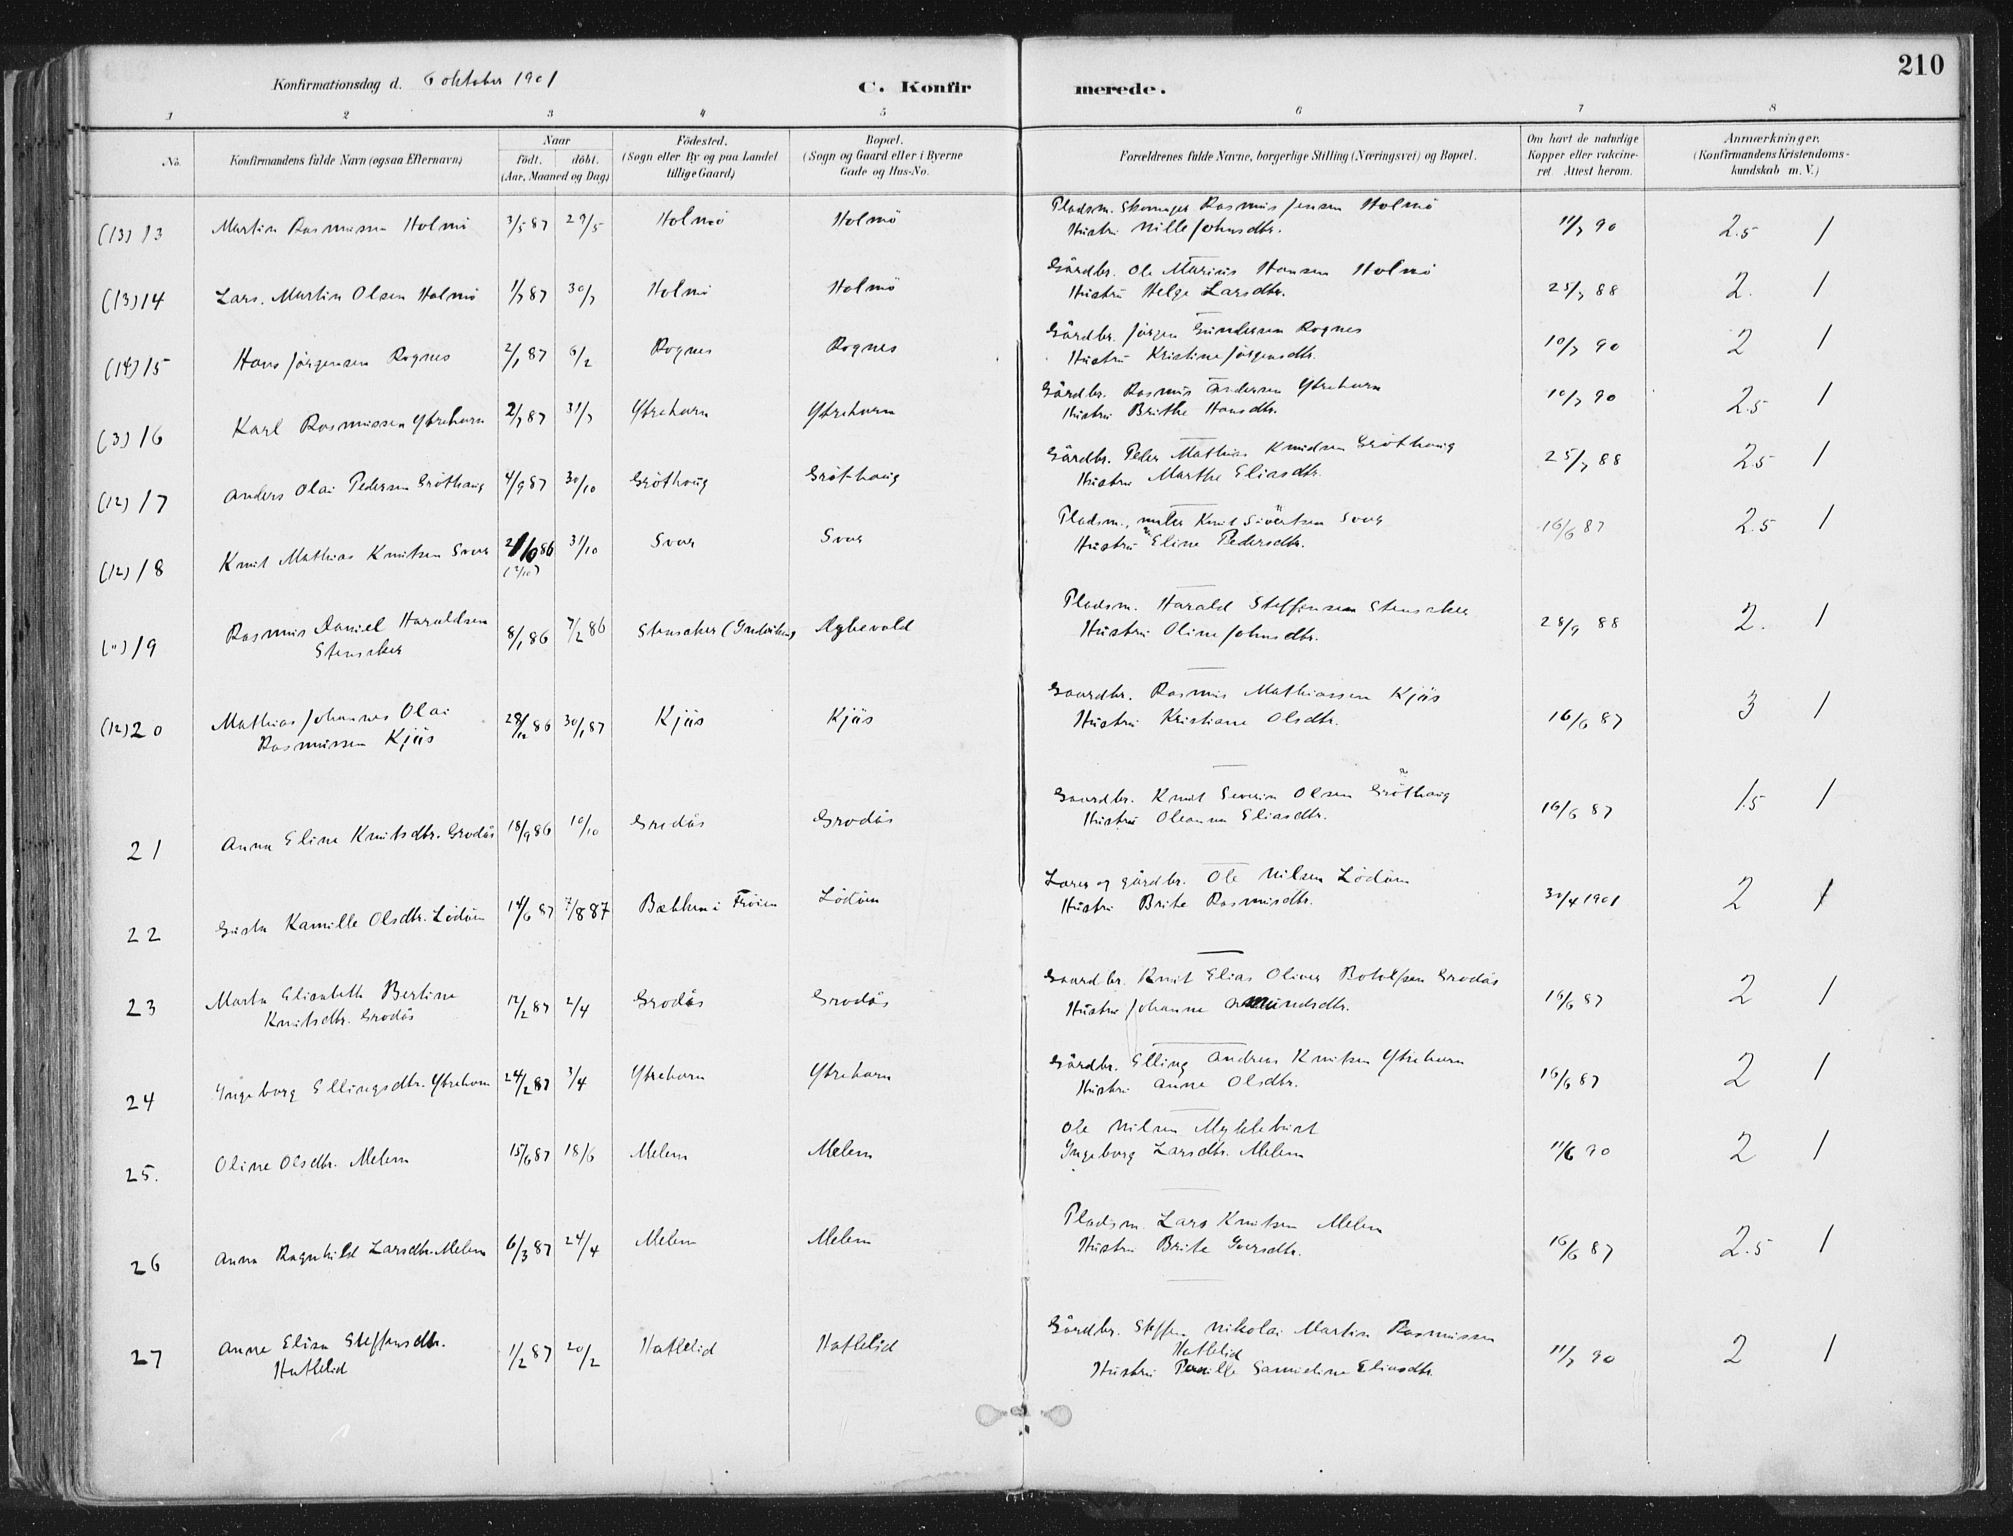 210
Konfirmationsdag d. 6 oktober 1901
C. Konfirmerede.
1 2 3 4 5 6 7 8
No. Konfirmandens fulde Navn (ogsaa Efternavn) Naar født. døbt. (Aar, Maaned og Dag) Fødested. (Sogn eller By og paa Landet tillige Gaard) Bopæl. (Sogn og Gaard eller i Byerne Gade og Hus-No. Forældrenes fulde Navne, borgerlige Stilling (Næringsvei) og Bopæl. Om havt de naturlige Kopper eller vakcineret Attest herom. Anmærkninger. (Konfirmandens Kristendomskundskab m. V.)
(13) 13 Martin Rasmussen Holmö 3/5 87 29/5 Holmö Holmö Pladsm. Skomager Rasmus Jensen Holmö 11/7 90 2.5 1
Hustru Nille Johnsdtr.
(13) 14 Lars. Martin Olsen Holmö 1/7 87 30/7 Holmö Holmö Gårdbr. Ole Marius Hansen Holmö 25/7 88 2. 1
Hustru Helge Larsdtr.
(14) 15 Hans Jörgensen Rognes 2/1 87 6/2 Rognes Rognes Gårdbr. Jörgen Gundersen Rognes 10/7 90 2 1
Hustru Kristine Jörgensdtr.
(3) 16 Karl Rasmussen Ytrehorn 2/7 87 31/7 Ytrehorn Ytrehorn Gårdbr. Rasmus Andersen Ytrehorn 10/7 90 2.5 1
Hustru Brithe Hansdtr.
(12) 17 Anders Olai Pedersen Gröthaug 4/9 87 30/10 Gröthaug Gröthaug Gårdbr. Peder Mathias Knudsen Gröthaug 25/7 88 2.5 1
Hustru Marthe Eliasdtr.
(12) 18 Knut Mathias Knutsen Svor 86 31/10 Svor Svor Pladsm., maler Knut Sivertsen Svor 16/6 87 2.5 1
(2/10) Hustru Eline Pedersdtr.
(") 19 Rasmus Daniel Haraldsen 8/1 86 7/2 86 Stensaker (Indviken) Nybevold Pladsm. Harald Steffensen Stensaker 28/9 88 2. 1
Stensaker Hustru Oline Johnsdtr.
(12) 20 Mathias Johannes Olai 28/12 86 30/1 87 Kjös Kjös Gaardbr. Rasmus Mathiassen Kjös 16/6 87 3 1
Rasmussen Kjös Hustru Kristiane Olsdtr.
21 Anna Eline Knutsdtr. Grodås 18/9 86 10/10 Grodås Grodås Gaardbr. Knut Severin Olsen Gröthaug 16/6 87 1.5 1
Hustru Oleanna Eliasdtr.
22 Gusta Kamille Olsdtr. Lödöen 14/6 87 7/8 87 Lödöen Lærer og gårdbr. Ole Nilsen Lödöen 30/4 1901 2 1
Hustru Brite Rasmusdtr.
23 Marta Elisabeth Bertine 12/2 87 2/4 Grodås Grodås Gaardbr. Knut Elias Oliver Botolfsen Grodås 16/6 87 2 1
Knutsdtr. Grodås Hustru Johanne Amundsdtr.
24 Ingeborg Ellingsdtr. Ytrehorn 24/2 87 3/4 Ytrehorn Ytrehorn Gårdbr. Elling Andreas Knutsen Ytrehorn 16/6 87 2 1
Hustru Anne Olsdtr.
25. Oline Olsdtr. Melem 15/6 87 18/6 Melem Melem Ole Nilsen Myklebust 11/6 90 2 1
Ingeborg Larsdtr. Melem
26 Anna Ragnhild Larsdtr. Melem 6/3 87 24/4 Melem Melem Pladsm. Lars Knutsen Melem 16/6 87 2.5 1
Hustru Brite Iversdtr.
27 Anne Elisa Steffensdtr. 1/2 87 20/2 Hatlelid Hatlelid Gårdbr. Steffen Nikolai Martin Rasmussen 11/7 90 2 1
Hatlelid Hatlelid
Hustru Pernille Samueline Eliasdtr.